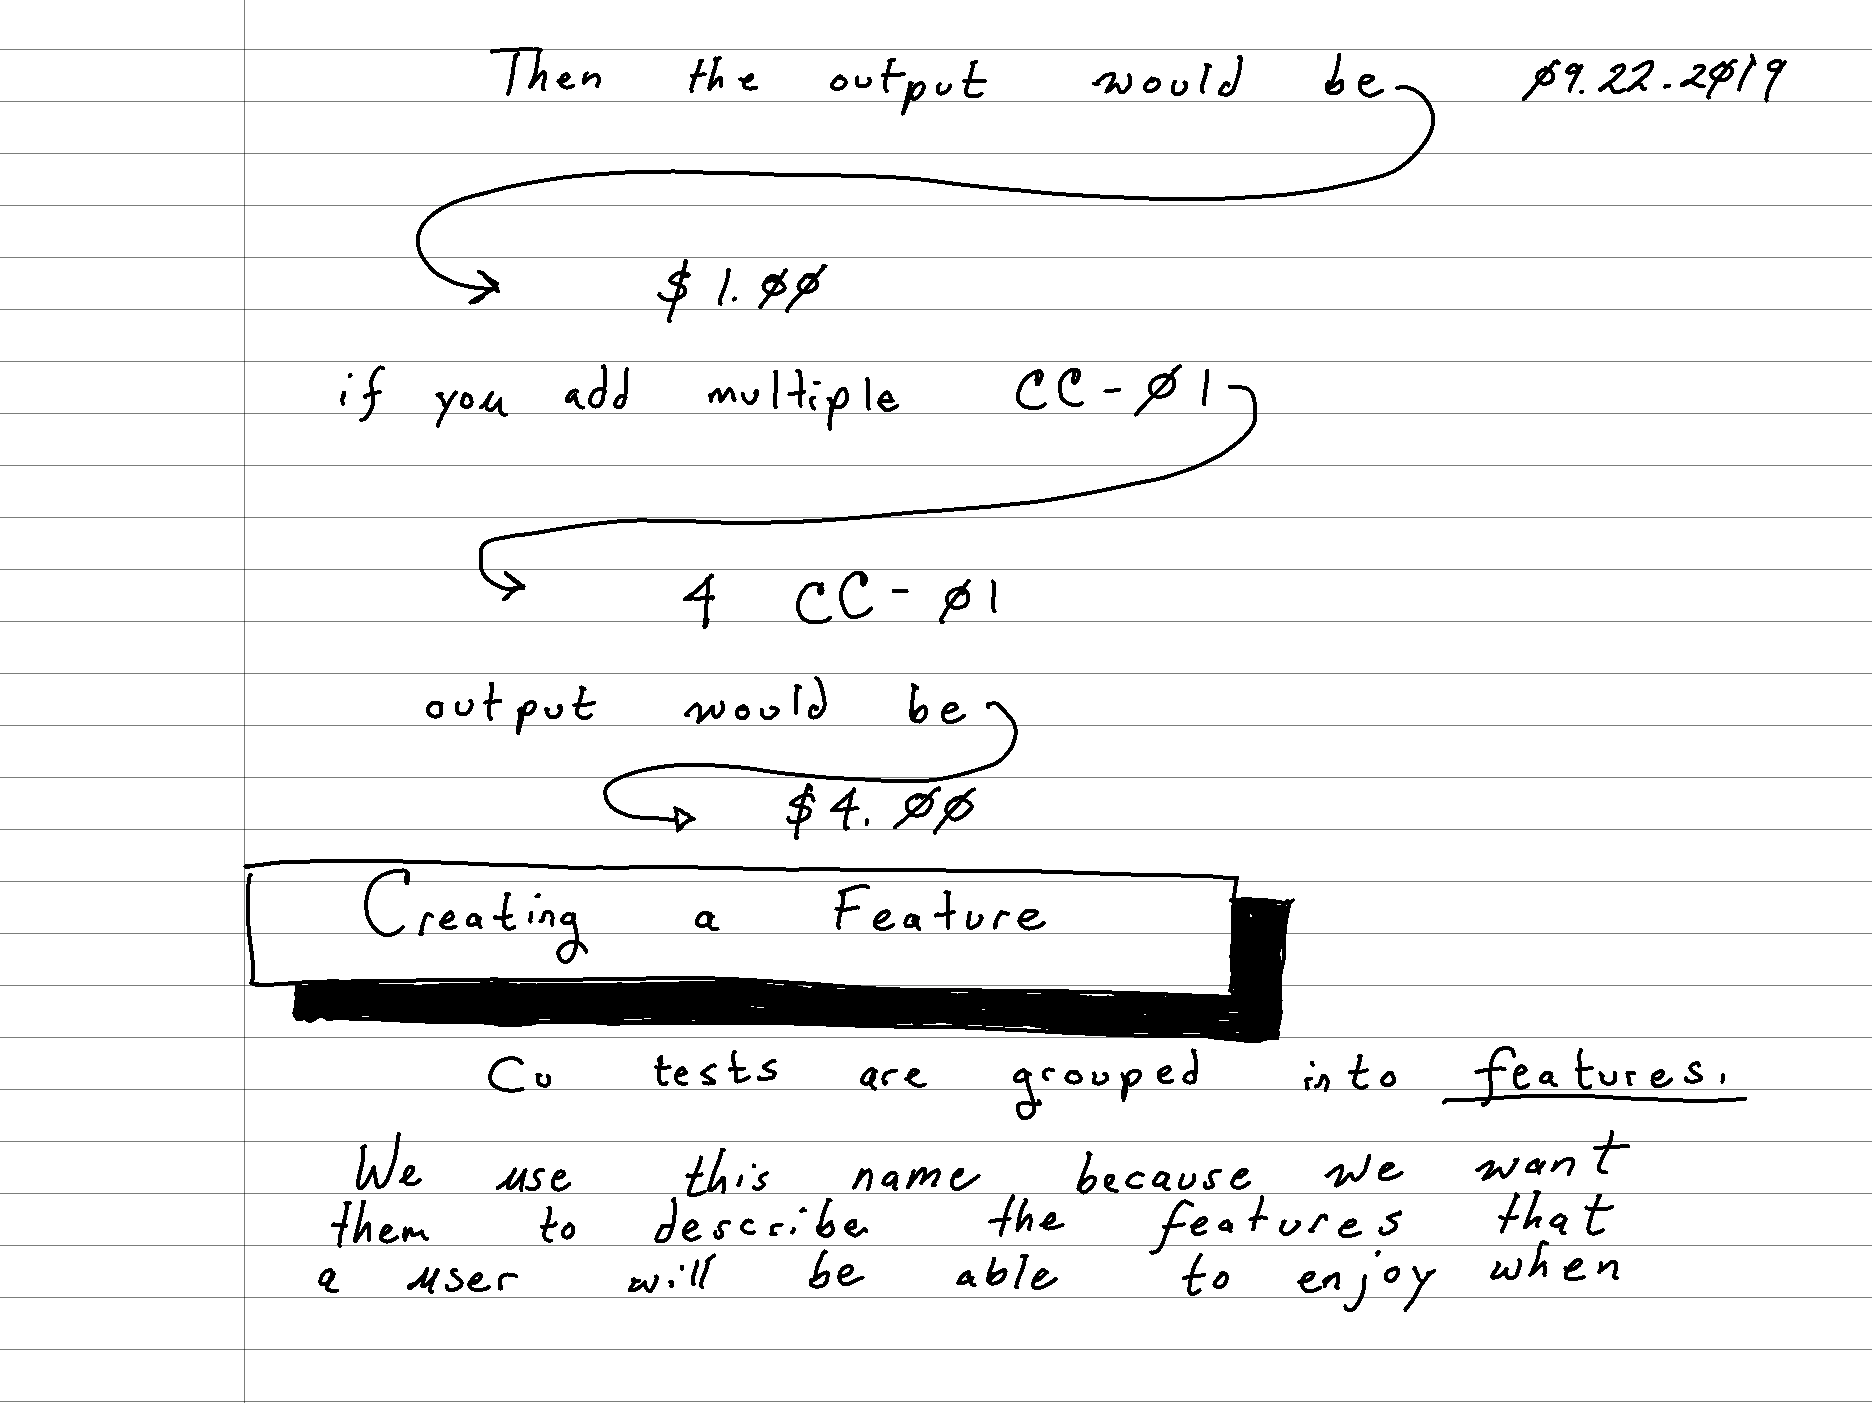 Then the output would be 09.22.2019
$1.00
if you add multiple CC-01
4 CC-01
output would be
$4.00
Creating a Feature
Cu tests are grouped into features.
We use this name because we want
them to describe the features that
a user will be able to enjoy when